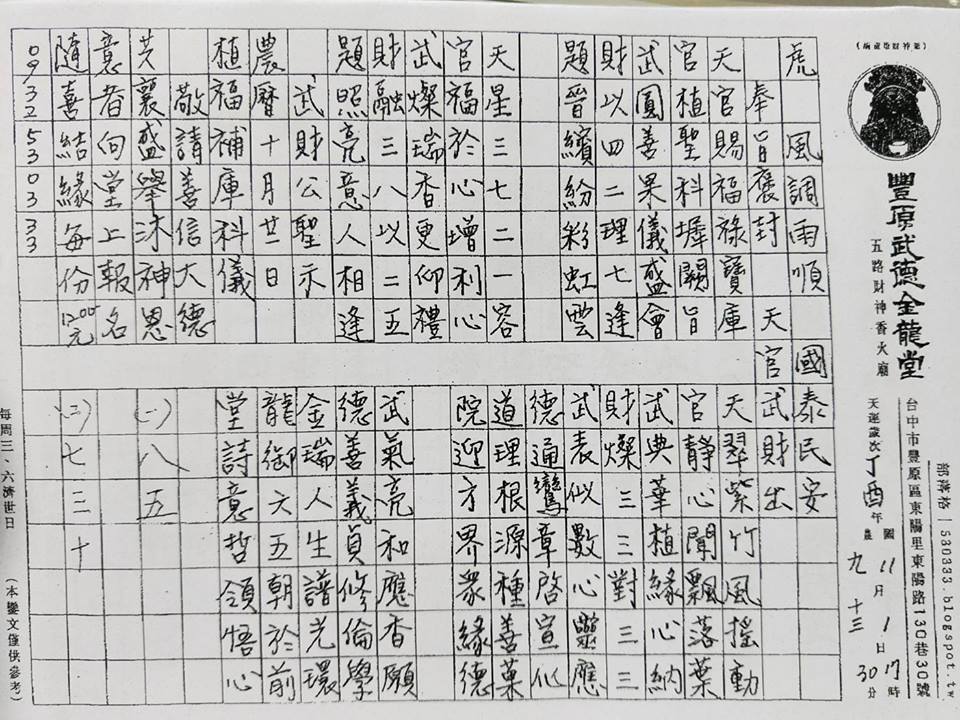 豐原武德金龍堂
五路財神香火廟
部落格｜530333.blogspot.tw
台中市豐原區東陽里東陽路130巷30號
天運歲次丁酉年 國11月1日17時30分
農九 十三
虎 風調雨順 國泰民安
奉旨褒封 天官武財出
天官賜福祿寶庫
官植聖科墀闕旨
武圓善果儀盛會
財以四二理七逢
題晉繽紛彩虹雲
天星三七二一容
官福於心增利心
武燦瑞香更仰禮
財融三八以二五
題照亮意人相逢
武財公聖示
農曆十月廿日
植福補庫科儀
敬請善信大德
共襄盛舉沐神恩
意者向堂上報名
隨喜結緣每份1200元
0932530333
天翠紫竹風搖動
官靜心聞飄落葉
武典華植緣心納
財燦三三對三三
武表似數心靈應
德通鸞章啓宣似
道理根源種善菓
院迎方界眾緣德
武氣亮和應香願
德善義貞修倫學
金瑞人生譜光環
龍御六五朝於前
堂詩意哲領悟心
(一)八五
(二)七三十
每周三、六濟世日
(本鑒文僅供參考)